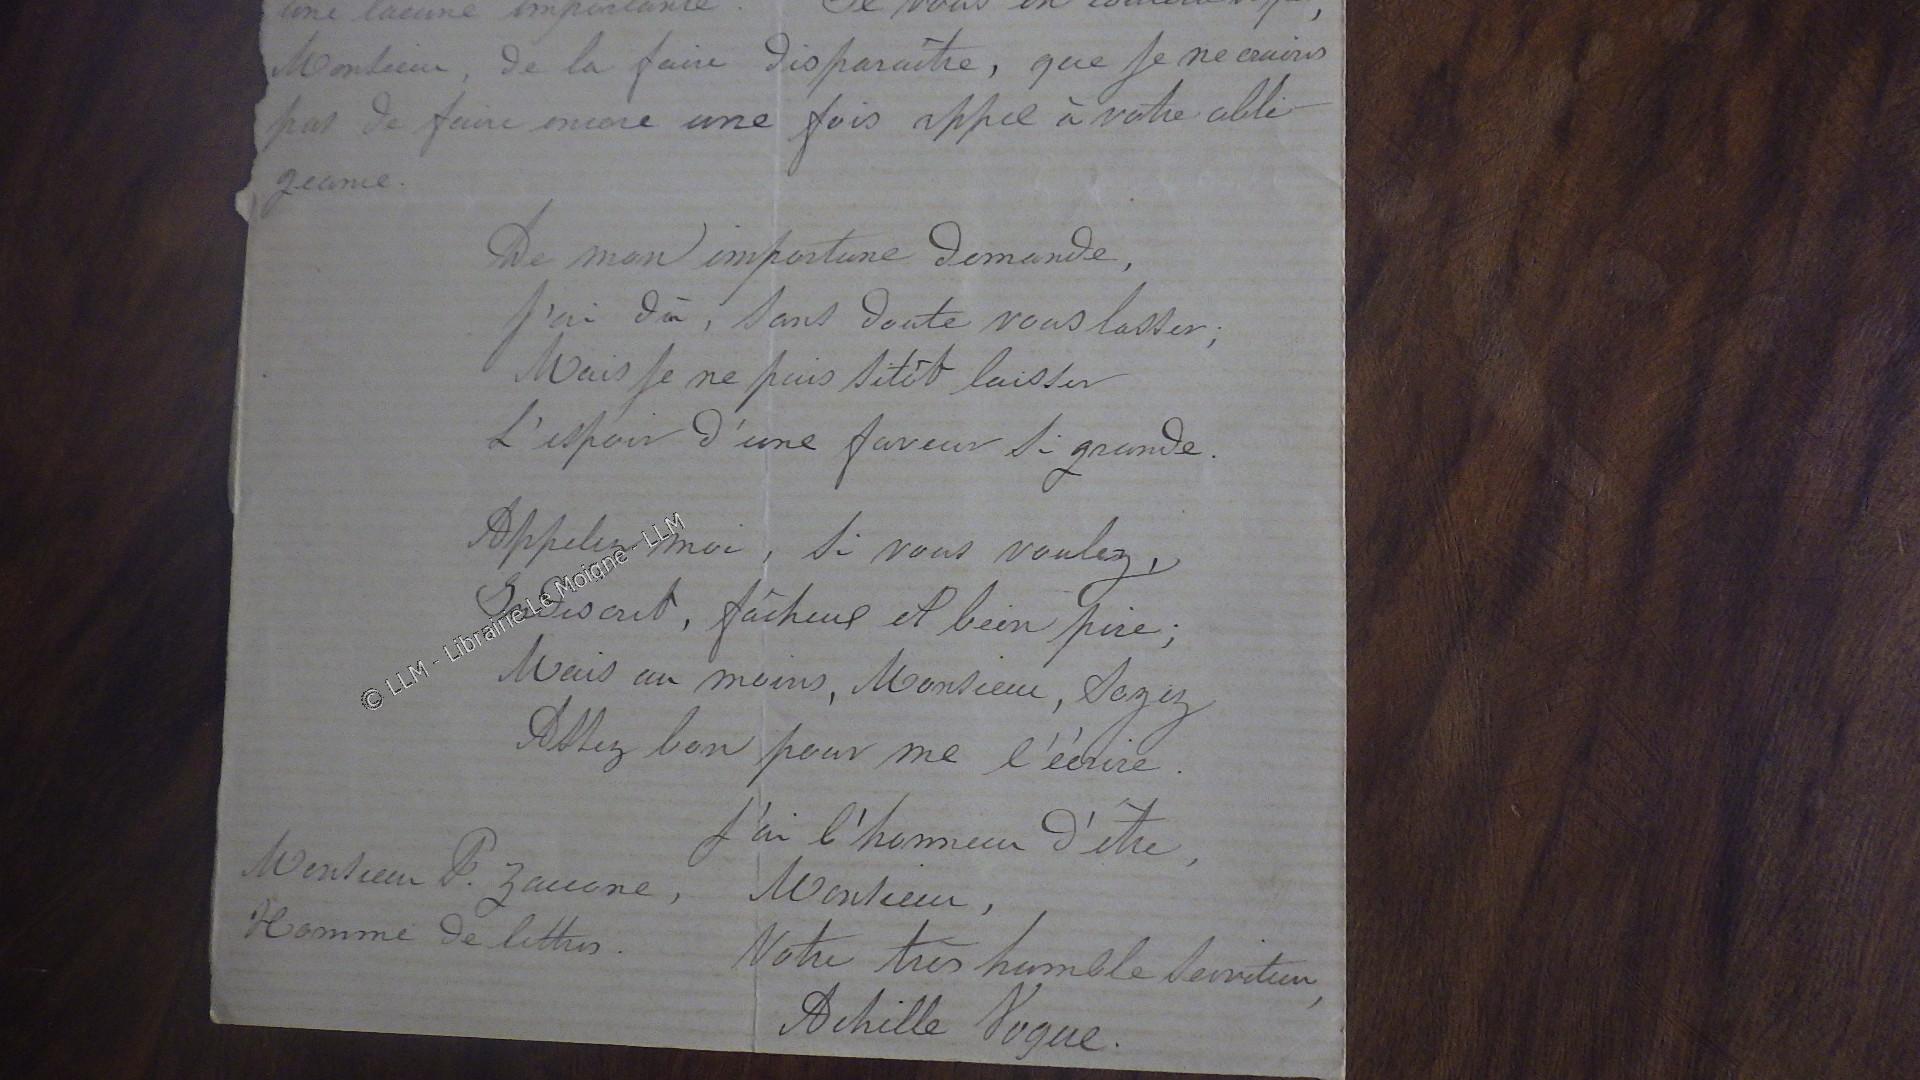 une lacune importante. Il vous en coûtera si peu,
Monsieur, de la faire disparaître, que je ne crains
pas de faire encore une fois appel à votre obli-
geance.
De mon importune demande,
J'ai dû, sans doute vous lasser;
Mais je ne puis sitôt laisser
L'espoir d'une faveur si grande.
Appelez moi, si vous voulez,
Indiscret, fâcheux et bien pire;
Mais au moins, Monsieur, soyez
Assez bon pour me l'écrire.
J'ai l'honneur d'être,
Monsieur P. Zaccone, Monsieur,
Homme de lettres.
Votre très humble serviteur,
Achille Vogue.
© LLM - Librairie Le Moigne - LLM